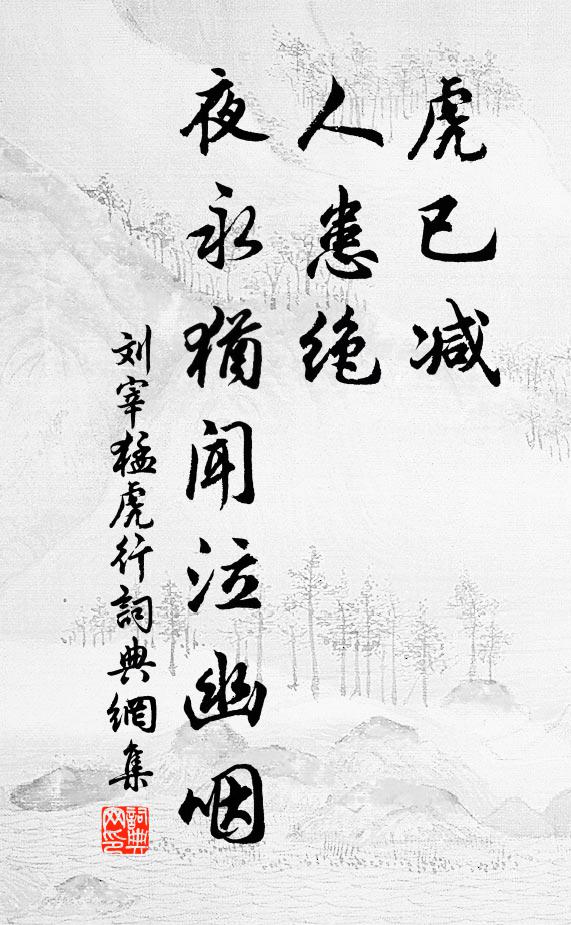 虎已减
人患绝
夜永犹闻泣幽咽
刘宰猛虎行詞典網集
詞典网印